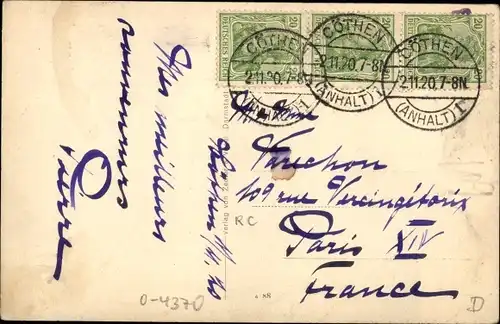 20 20 20
DEUTSCHES REICH
CÖTHEN
2.11.20.7-8N
(ANHALT) 1
CÖTHEN
2.11.20.7-8N
(ANHALT) 1
CÖTHEN
2.11.20.7-8N
(ANHALT) 1
Mes meilleurs
souvenirs
Pierre
Varechon
109 rue Vercingétorix
Paris XIV
France
Verlag von
RC
0-4370
D